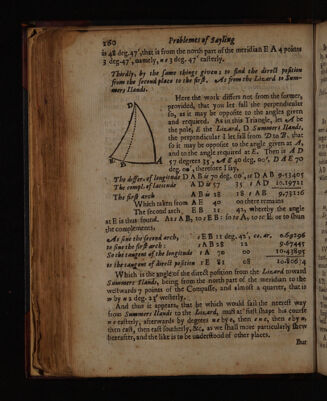 260 Problemes of Sayling
is 48 deg. 47', that is from the north part of the meridian E A 4 points
3 deg. 47', namely, ne 3 deg. 47' easterly.
Thirdly, by the same things given: to find the direct position
from the second place to the first. As from the Lizard to Summers Ilands.
Here the work differs not from the former,
provided, that you let fall the perpendicular
so, as it may be opposite to the angles given
and required. As in this Triangle, let A be
the pole, E the Lizard, D Summers Ilands,
the perpendicular I let fall from D to B. that
so it may be opposite to the angle given at A,
and to the angle required at E. Then is A D
57 degrees 35', A E 40 deg. 00', D A E 70
deg. 00', therefore I say,
The differ. of longitude D A B is 70 deg. 00', 1s D A B 9.53405
The compl. of latitude A D is 57 35 t A D 10.19721
The first arch A B is 28 18 t A B 9.73126
Which taken from A E 40 00 there remains
The second arch, E B 11 42, whereby the angle
at E is thus found. As s A B, to s E B: so to to
the complement.
As sine the second arch, s E B 11 deg. 42', co. ar. 0.69296
to sine the first arch: s A B 28 18 9.67445
So the tangent of the longitude t A 70 00 10.43893
to the tangent of direct position t E 81 08 10.80674
Which is the angle of the direct position from the Lizard toward
Summers Ilands, being from the north part of the meridian to the
westwards 7 points of the Compasse, and almost a quarter, that is
w by n 2 deg. 23' westerly.
And thus it appears, that he which would sail the neerest way
from Summers Ilands to the Lizard, must at first shape his course
ne easterly; afterwards by degrees ne by e, then ene, then e by n,
then east, then east southerly, &c. as we shall more particularly shew
hereafter, and the like is to be understood of other places.
But